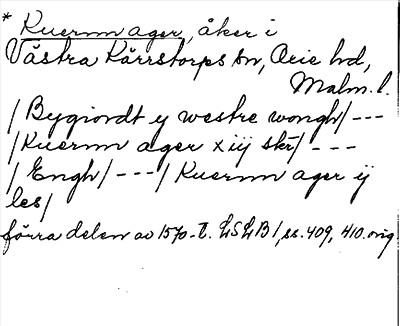 * Kuernn ager, åker i
Västra Kärrstorps sn, Oxie hd,
Malm. l.
/ Bygiordt y westre wongh/ ---
/Kuernn ager x iij skr/ ---
/ Engh/ ---/ Kuernn ager ij
les/
förra delen av 1570-t. LSLB I, ss. 409, 410. orig.